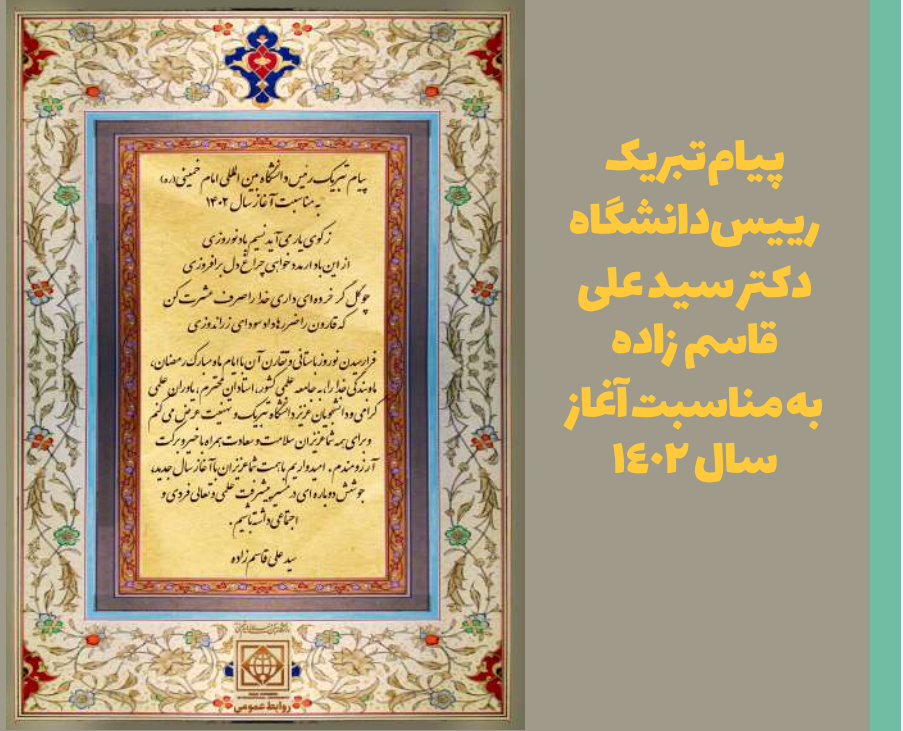 پیام تبریک
رییس دانشگاه
دکتر سید علی
قاسم زاده
به مناسبت آغاز
سال ۱۴۰۲
پیام تبریک رئیس دانشگاه بین المللی امام خمینی (ره)
به مناسبت آغاز سال ۱۴۰۲
ز کوی یار می آید نسیم باد نوروزی
از این باد ار مدد خواهی چراغ دل برافروزی
چو گل گر خرده ای داری خدا را صرف عشرت کن
که قارون را ضررها داد سودای زراندوزی
فرارسیدن نوروز باستانی و تقارن آن با ایام ماه مبارک رمضان،
ماه بندگی خدا را، به جامعه علمی کشور، استادان محترم، یاوران علمی
گرامی و دانشجویان عزیز دانشگاه تبریک و تهنیت عرض می کنم
و برای همه شما عزیزان سلامت و سعادت همراه با خیر و برکت
آرزومندم. امیدواریم با همت شما عزیزان با آغاز سال جدید،
جوشش دوباره ای در مسیر پیشرفت علمی و تعالی فردی و
اجتماعی داشته باشیم.
سید علی قاسم زاده
روابط عمومی